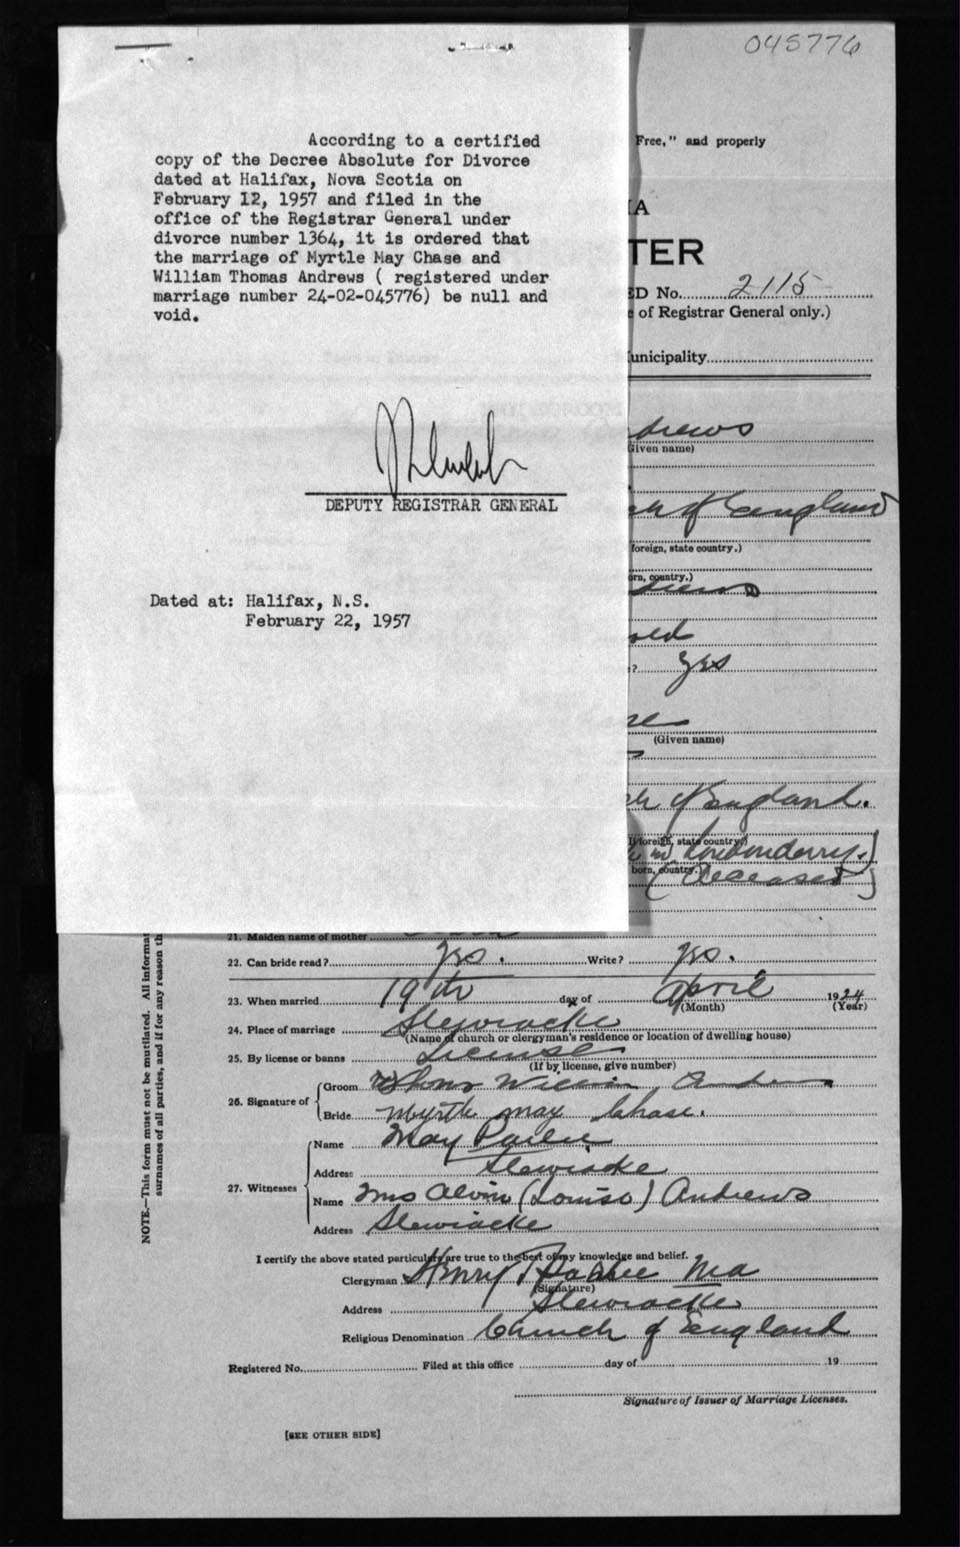 045776
According to a certified
copy of the Decree Absolute for Divorce
dated at Halifax, Nova Scotia on
February 12, 1957 and filed in the
office of the Registrar General under
divorce number 1364, it is ordered that
the marriage of Myrtle May Chase and
William Thomas Andrews ( registered under
marriage number 24-02-045776) be null and
void.
DEPUTY REGISTRAR GENERAL
Dated at: Halifax, N.S.
February 22, 1957
Free," and properly
IA
TER
ED No. 2115
e of Registrar General only.)
unicipality
drews
Given name)
ch of England
foreign, state country.)
rn, country.)
drews
old
? yes
ase
(Given name)
ch of England.
If foreign, state country.)
in Londonderry.)
born, country.)
(Deceased)
21. Maiden name of mother
22. Can bride read? Yes. Write? yes.
23. When married 19th day of April 1924
(Month) (Year)
24. Place of marriage Stewiacke
(Name of church or clergyman's residence or location of dwelling house)
25. By license or banns License
(If by license, give number)
26. Signature of Groom Thomas William Andrews
Bride Myrtle May Chase.
27. Witnesses Name May
Address Stewiacke
Name Mrs Alvin (Louise) Andrews
Address Stewiacke
I certify the above stated particulars are true to the best of my knowledge and belief.
Clergyman Henry MA
(Signature)
Address Stewiacke
Religious Denomination Church of England
Registered No. Filed at this office day of 19
Signature of Issuer of Marriage Licenses.
[SEE OTHER SIDE]
NOTE.—This form must not be mutilated. All informat
surnames of all parties, and if for any reason th